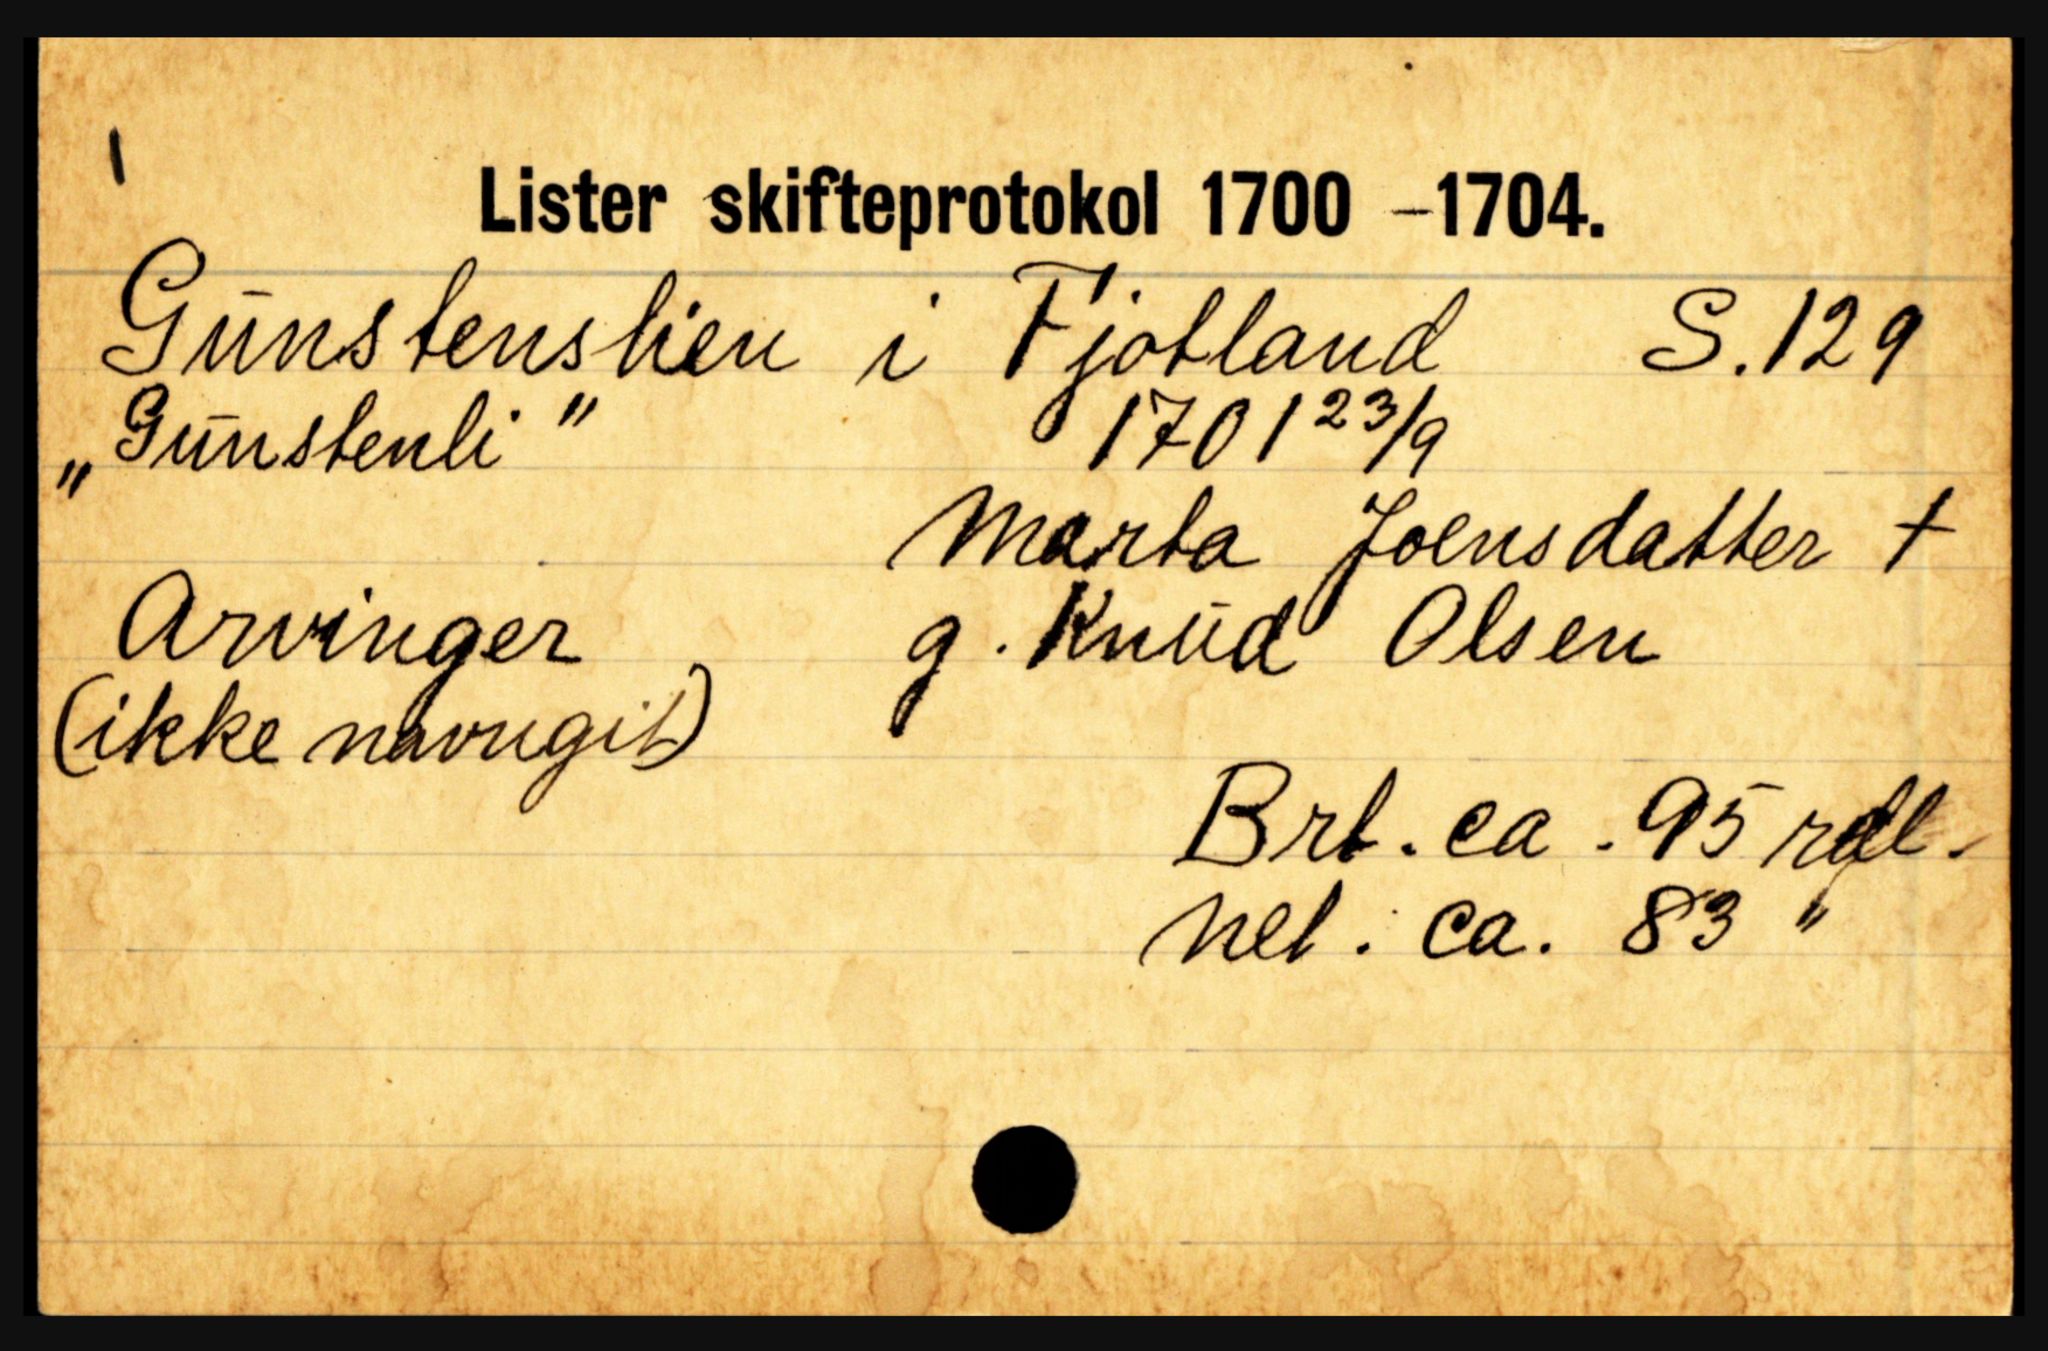 Lister skifteprotokol 1700 – 1704.
Gunstenslien i Fjotland S. 129
„Gunstenli" 1701 23/9
Marta Joensdatter †
Arvinger g. Knud Olsen
(ikke navngit)
Brt. ca. 95 rdl.
net. ca. 83 "